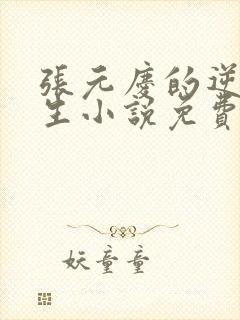 張元慶的逆
生小說免費
妖童童